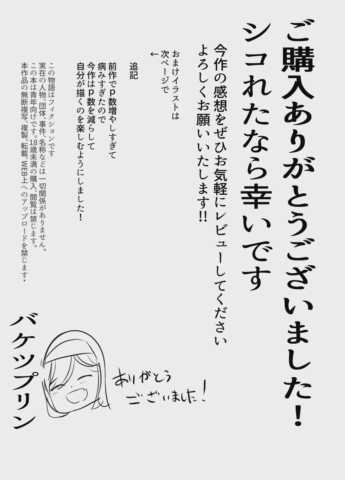 ご購入ありがとうございました!
シコれたなら幸いです
今作の感想をぜひお気軽にレビューしてください
よろしくお願いいたします!!
おまけイラストは
次ページで
↓
追記
前作でP数増やしすぎて
病みすぎたので
今作はP数を減らして
自分が描くのを楽しむようにしました!
この物語はフィクションです
実在の人物、団体、事件、名称などは一切関係がありません。
この本は青年向けです。18歳未満の購入、閲覧は禁じます。
本作品の無断複写、複製、転載、WEB上へのアップロードを禁じます。
バケツプリン
ありがとう
ございました!